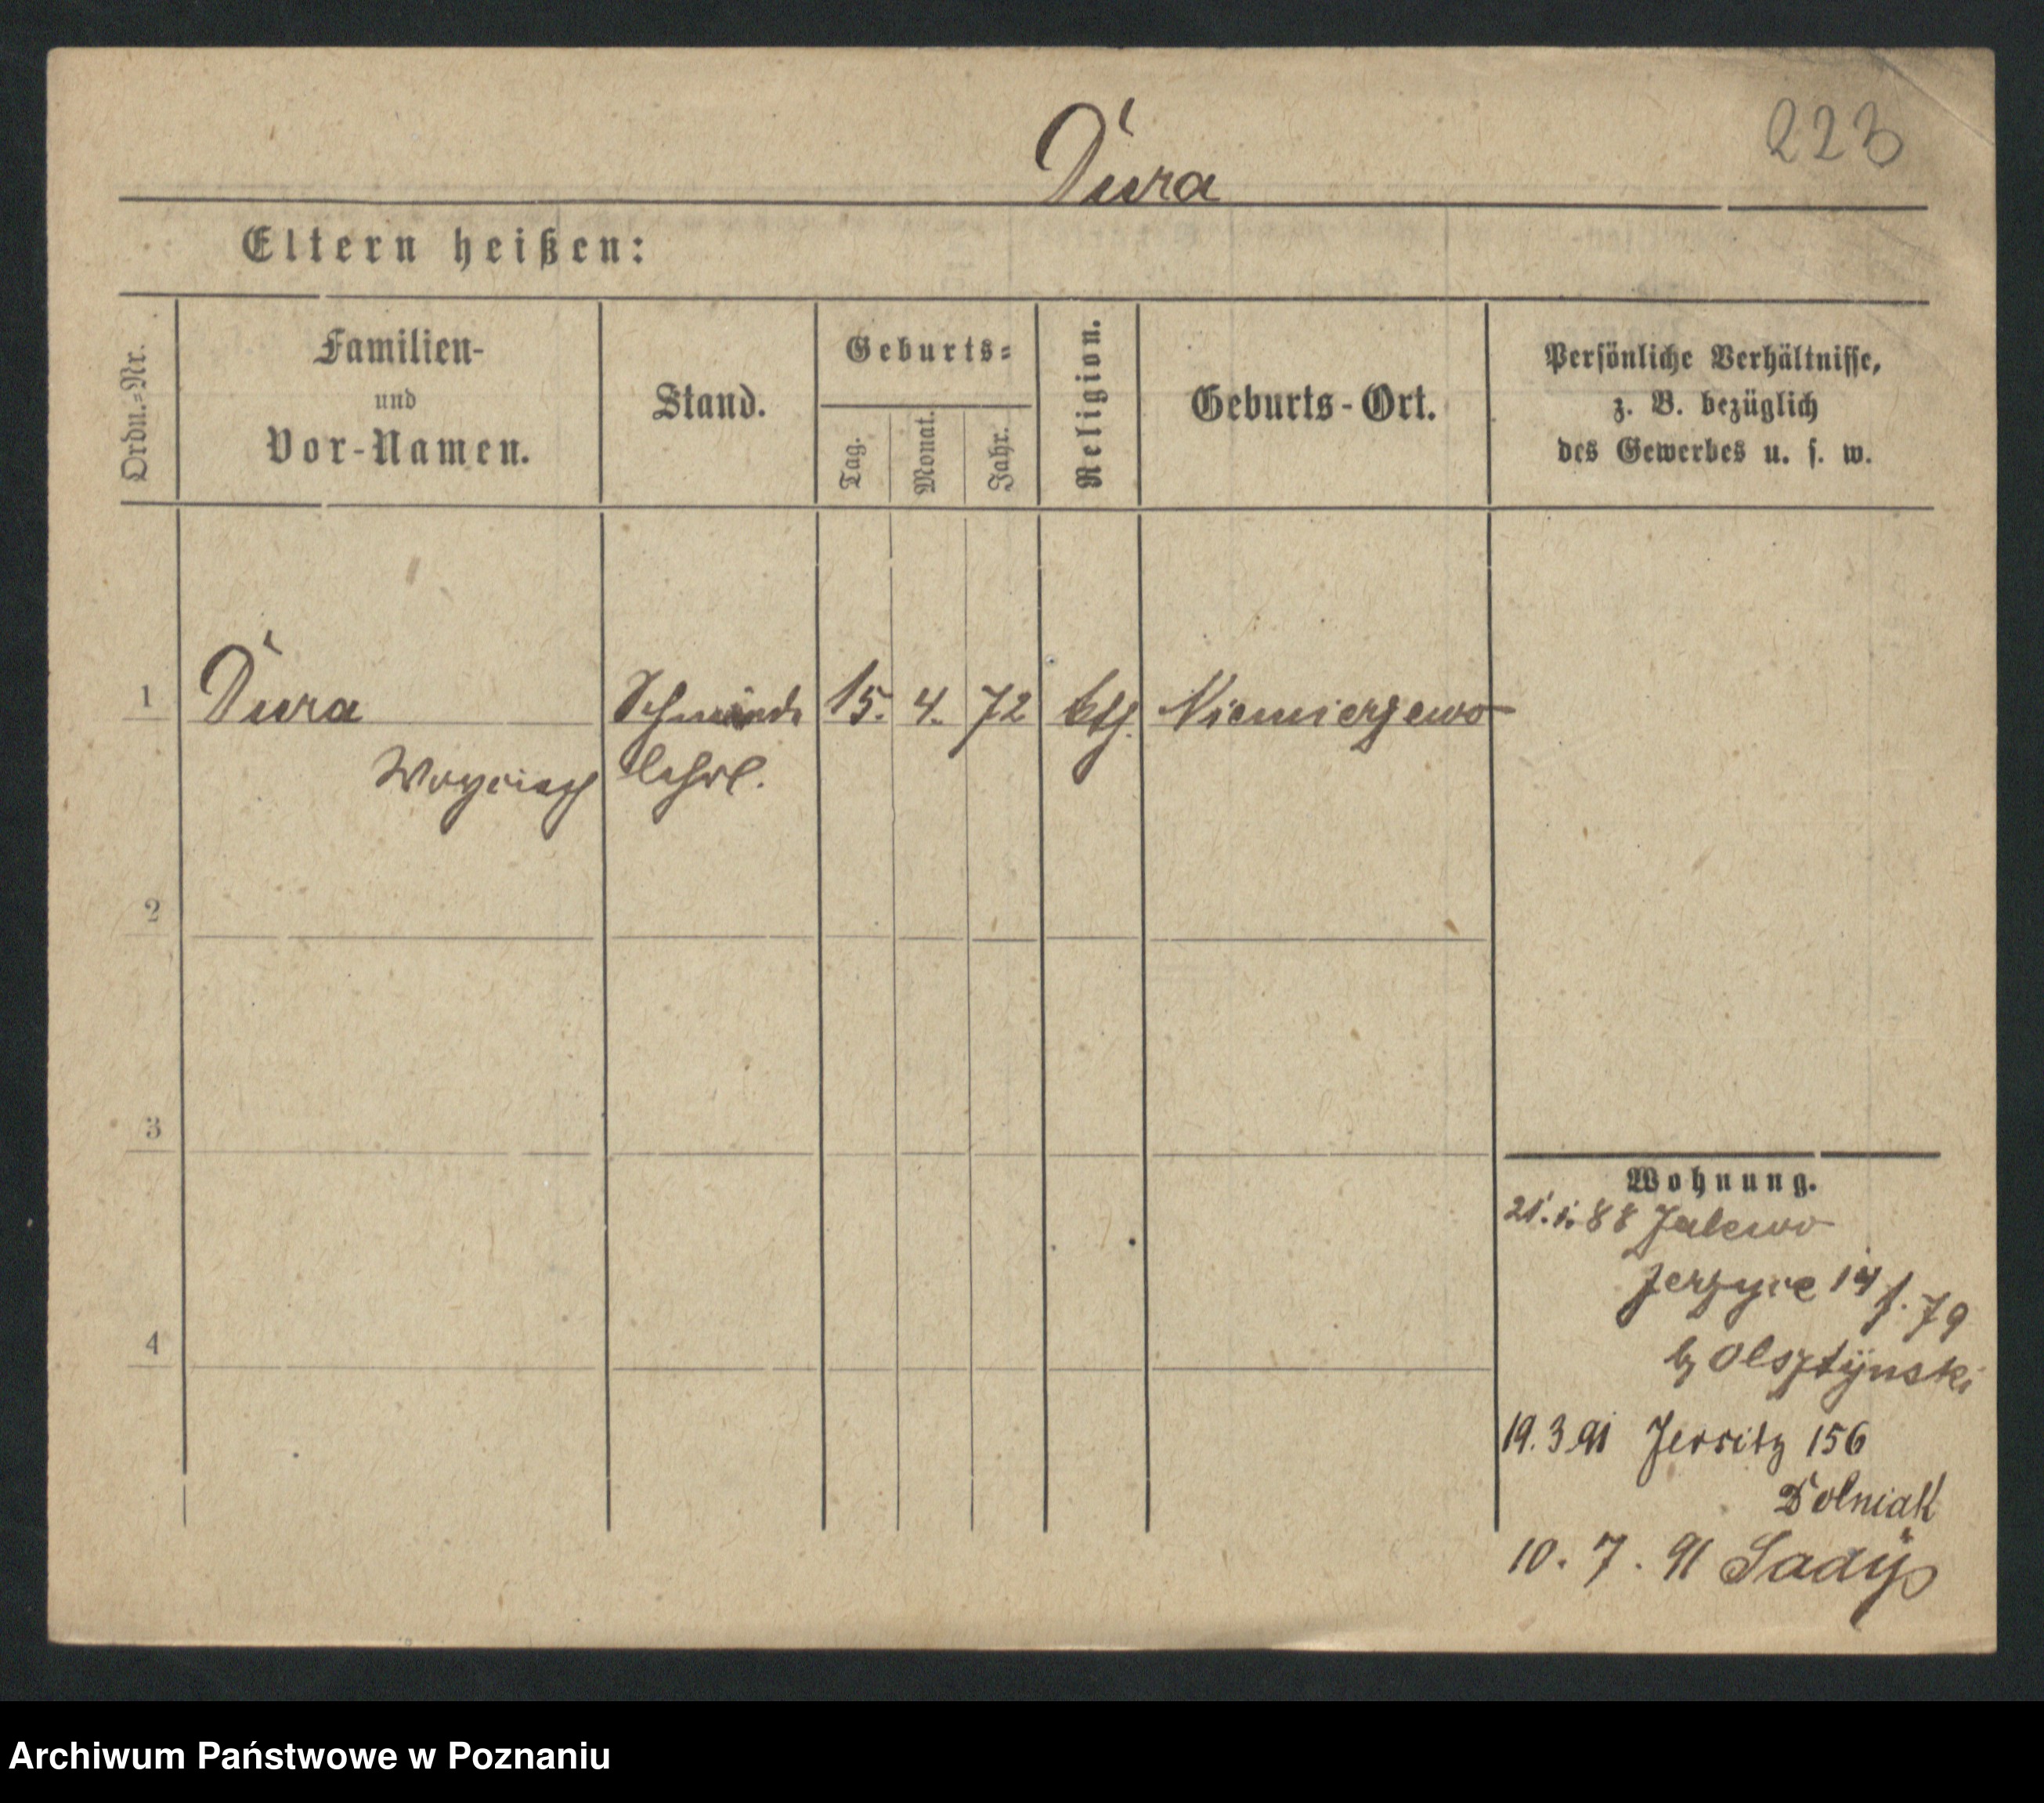 Dura
223
Eltern heißen:
Ordn.-Nr.
Familien-
und
Vor-Namen.
Stand.
Geburts-
Tag.
Monat.
Jahr.
Religion.
Geburts-Ort.
Persönliche Verhältnisse,
z. B. bezüglich
des Gewerbes u. s. w.
1 Dura 15. 4. 72 kth. Niemierzewo
Woyciech lehrl.
2
3
4
Wohnung.
88
Jerzyce 14 79
Olsztÿnski
19. 3 91 Jersitz 156
Dolniak
10. 7. 91 Sady
Archiwum Państwowe w Poznaniu